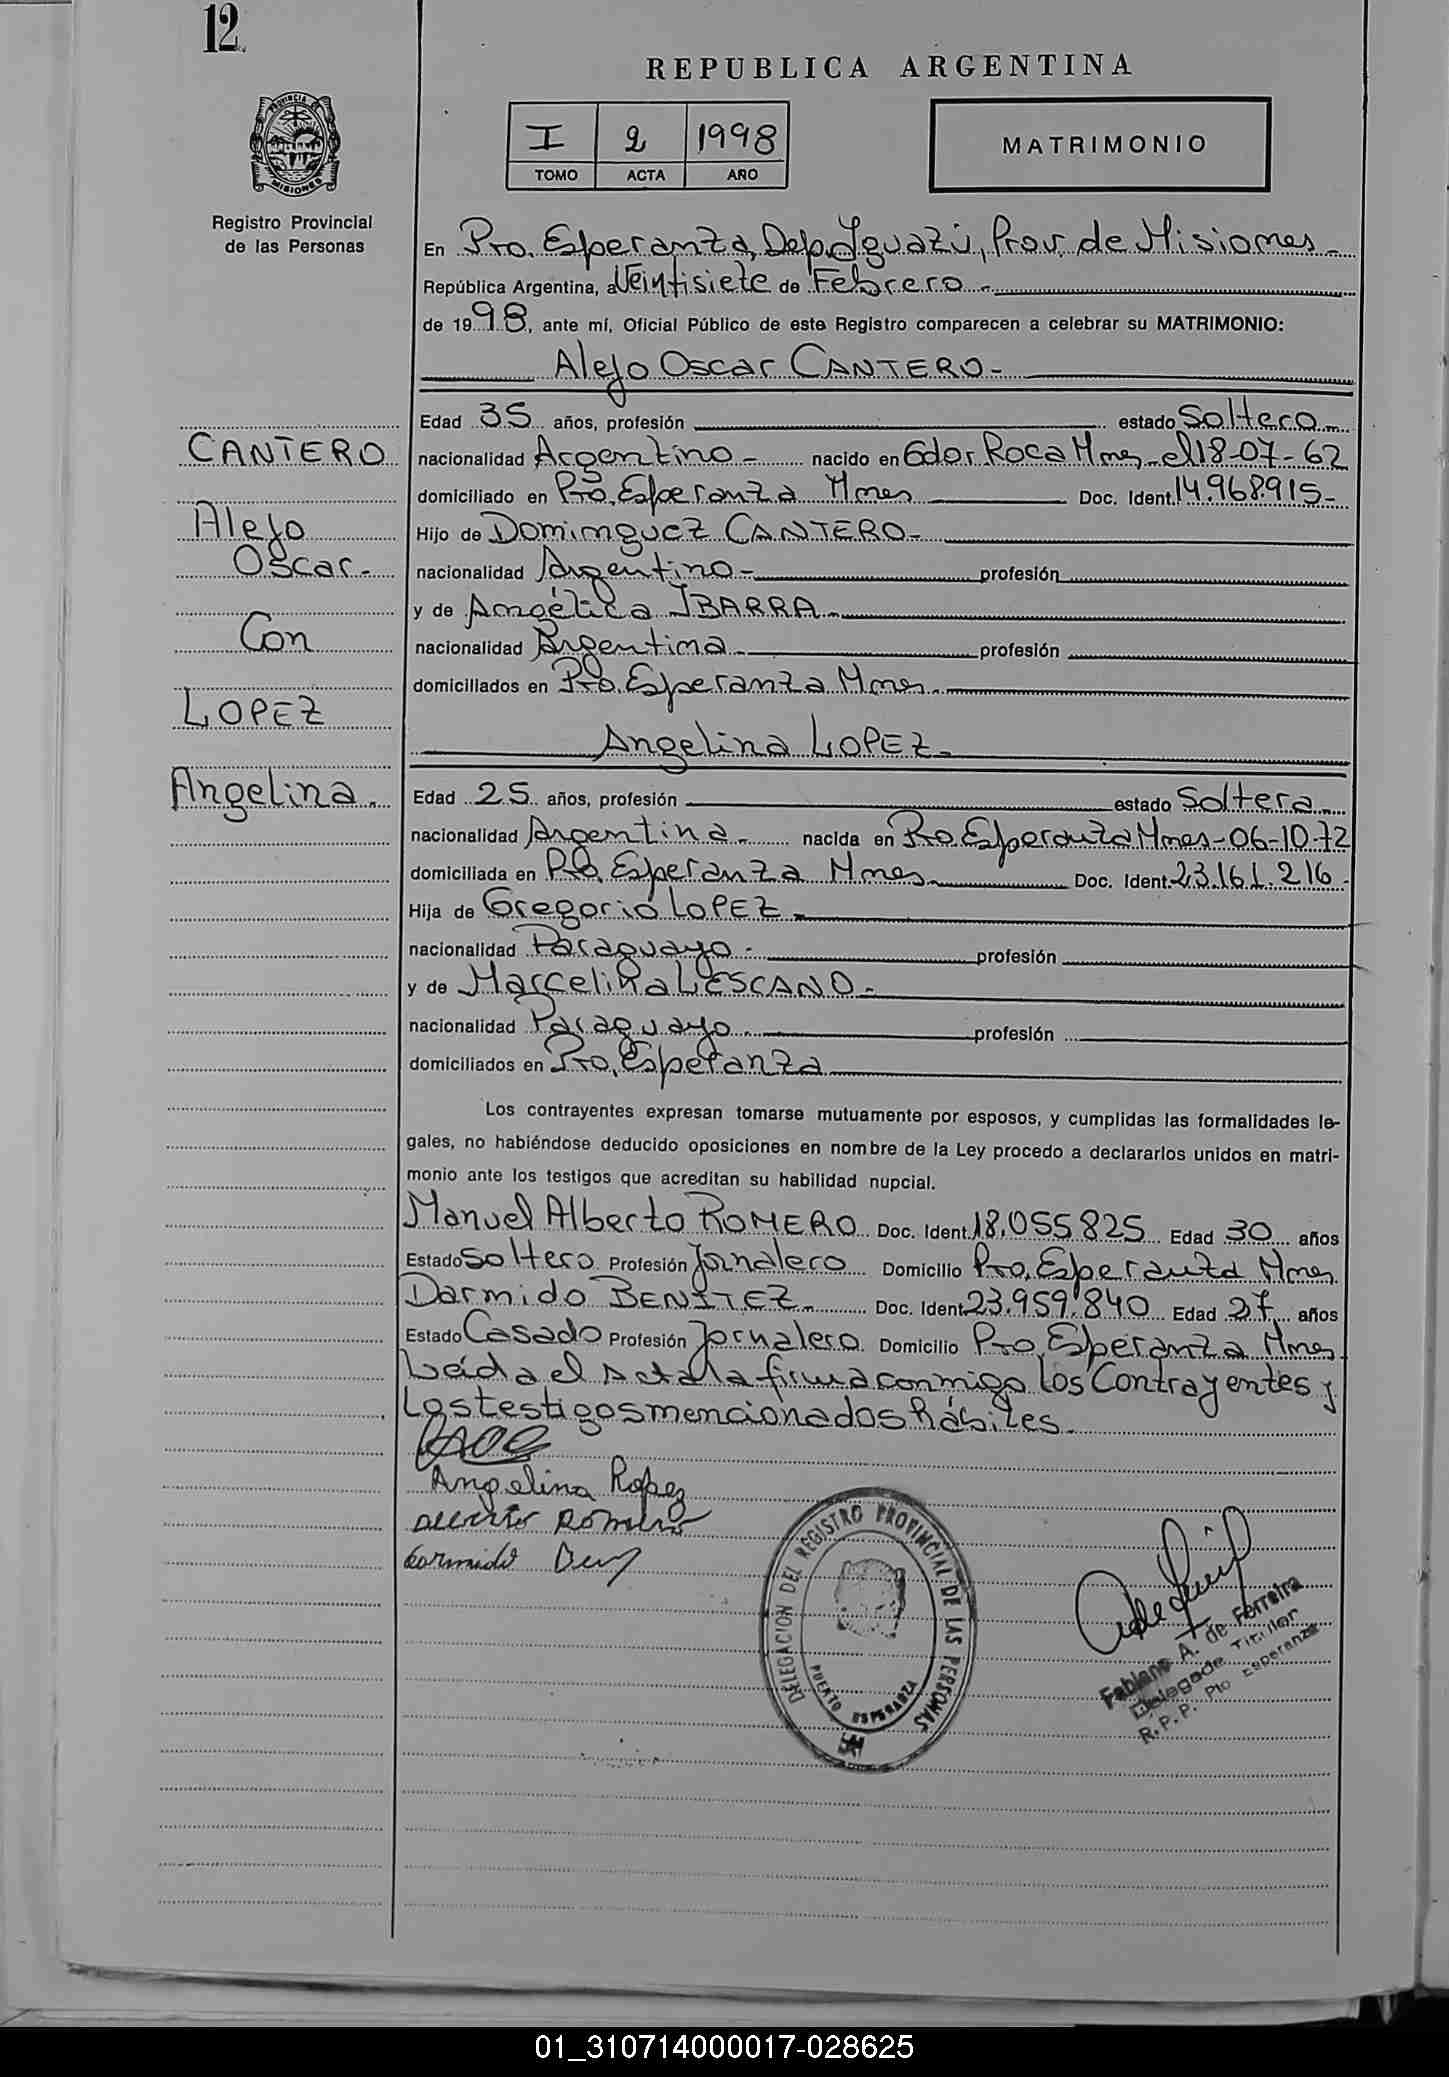 12
REPUBLICA ARGENTINA
I 2 1998
TOMO ACTA AÑO
MATRIMONIO
PROVINCIA DE
MISIONES
Registro Provincial
de las Personas
En Pto. Esperanza, Dep. Iguazú, Prov. de Misiones.-
República Argentina, a Veintisiete de Febrero.-
de 1998, ante mí, Oficial Público de este Registro comparecen a celebrar su MATRIMONIO:
Alejo Oscar CANTERO.-
Edad 35 años, profesión estado Soltero.
CANTERO nacionalidad Argentino.- nacido en Gdor Roca Mnes. el 18-07-62
domiciliado en Pto. Esperanza Mnes Doc. Ident. 14.968.915-
Alejo Hijo de Dominguez CANTERO.-
Oscar.- nacionalidad Argentino.- profesión
y de Angélica IBARRA.-
Con nacionalidad Argentina.- profesión
domiciliados en Pto. Esperanza Mnes.
LOPEZ
Angelina LOPEZ.-
Angelina. Edad 25 años, profesión estado Soltera.
nacionalidad Argentina.- nacida en Pto. Esperanza Mnes-06-10-72
domiciliada en Pto. Esperanza Mnes. Doc. Ident. 23.161.216-
Hija de Gregorio LOPEZ.-
nacionalidad Paraguayo.- profesión
y de Marcelina LESCANO.-
nacionalidad Paraguayo. profesión
domiciliados en Pto. Esperanza
Los contrayentes expresan tomarse mutuamente por esposos, y cumplidas las formalidades le-
gales, no habiéndose deducido oposiciones en nombre de la Ley procedo a declararlos unidos en matri-
monio ante los testigos que acreditan su habilidad nupcial.
Manuel Alberto ROMERO Doc. Ident. 18.055.825 Edad 30 años
Estado Soltero Profesión Jornalero Domicilio Pto. Esperanza Mnes.
Darmido BENITEZ. Doc. Ident. 23.959.840 Edad 27 años
Estado Casado Profesión Jornalero Domicilio Pto. Esperanza Mnes.
Leída el Acta la firma conmigo los Contrayentes y
Los testigos mencionados hábiles.
Angelina Lopez
Romero
Darmido Benz
DELEGACION DEL REGISTRO PROVINCIAL DE LAS PERSONAS
PUERTO ESPERANZA
Fabiana A. de Ferreira
Delegada Titular
R. P. P. Pto Esperanza
01_310714000017-028625